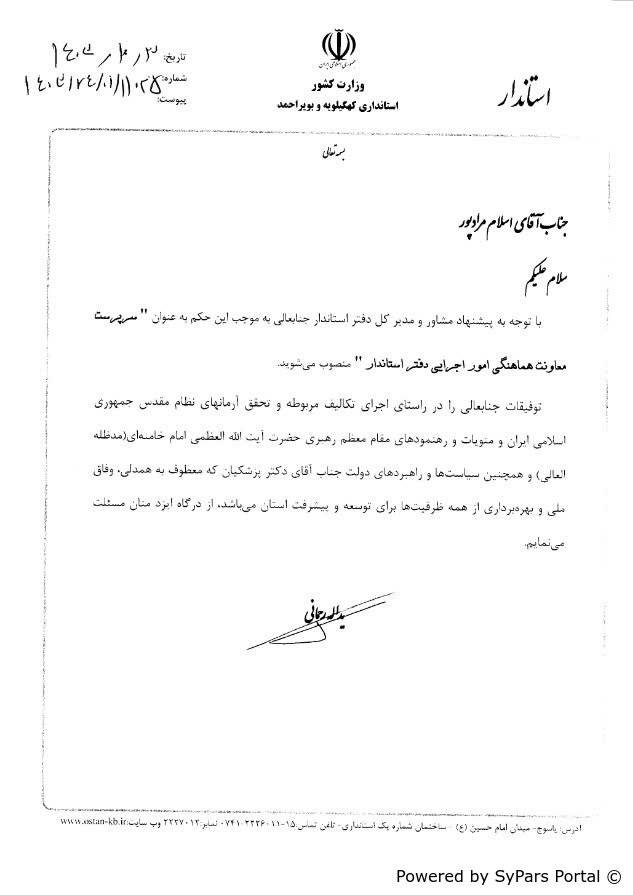 جمهوری اسلامی ایران
وزارت کشور
استانداری کهگیلویه و بویراحمد
استاندار
تاریخ:
شماره:
پیوست:
بسمه تعالی
جناب آقای اسلام مرادپور
سلام علیکم
با توجه به پیشنهاد مشاور و مدیر کل دفتر استاندار جنابعالی به موجب این حکم به عنوان " سرپرست
معاونت هماهنگی امور اجرایی دفتر استاندار " منصوب می‌شوید.
توفیقات جنابعالی را در راستای اجرای تکالیف مربوطه و تحقق آرمانهای نظام مقدس جمهوری
اسلامی ایران و منویات و رهنمودهای مقام معظم رهبری حضرت آیت الله العظمی امام خامنه‌ای(مدظله
العالی) و همچنین سیاست‌ها و راهبردهای دولت جناب آقای دکتر پزشکیان که معطوف به همدلی، وفاق
ملی و بهره‌برداری از همه ظرفیت‌ها برای توسعه و پیشرفت استان می‌باشد، از درگاه ایزد منان مسئلت
می‌نمایم.
یداله رحمانی
آدرس: یاسوج- میدان امام حسین (ع) - ساختمان شماره یک استانداری- تلفن تماس:۱۵-۰۷۴۱-۲۲۲۶۰۱۱ نمابر:۲۲۲۷۰۱۲ وب سایت:www.ostan-kb.ir
Powered by SyPars Portal ©